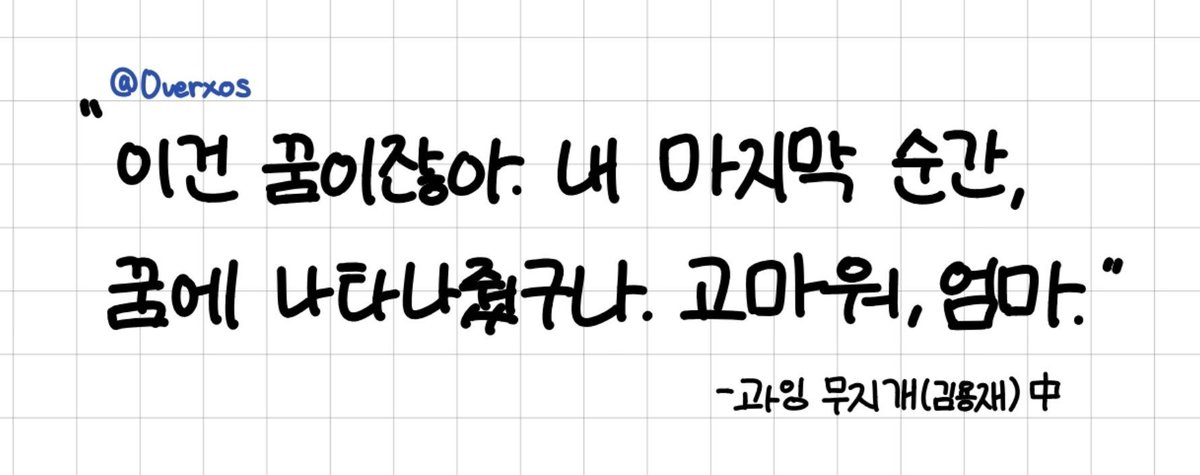 @Overxos
"이건 꿈이잖아. 내 마지막 순간,
꿈에 나타나줬구나. 고마워, 엄마."
-과잉 무지개(김용재) 中